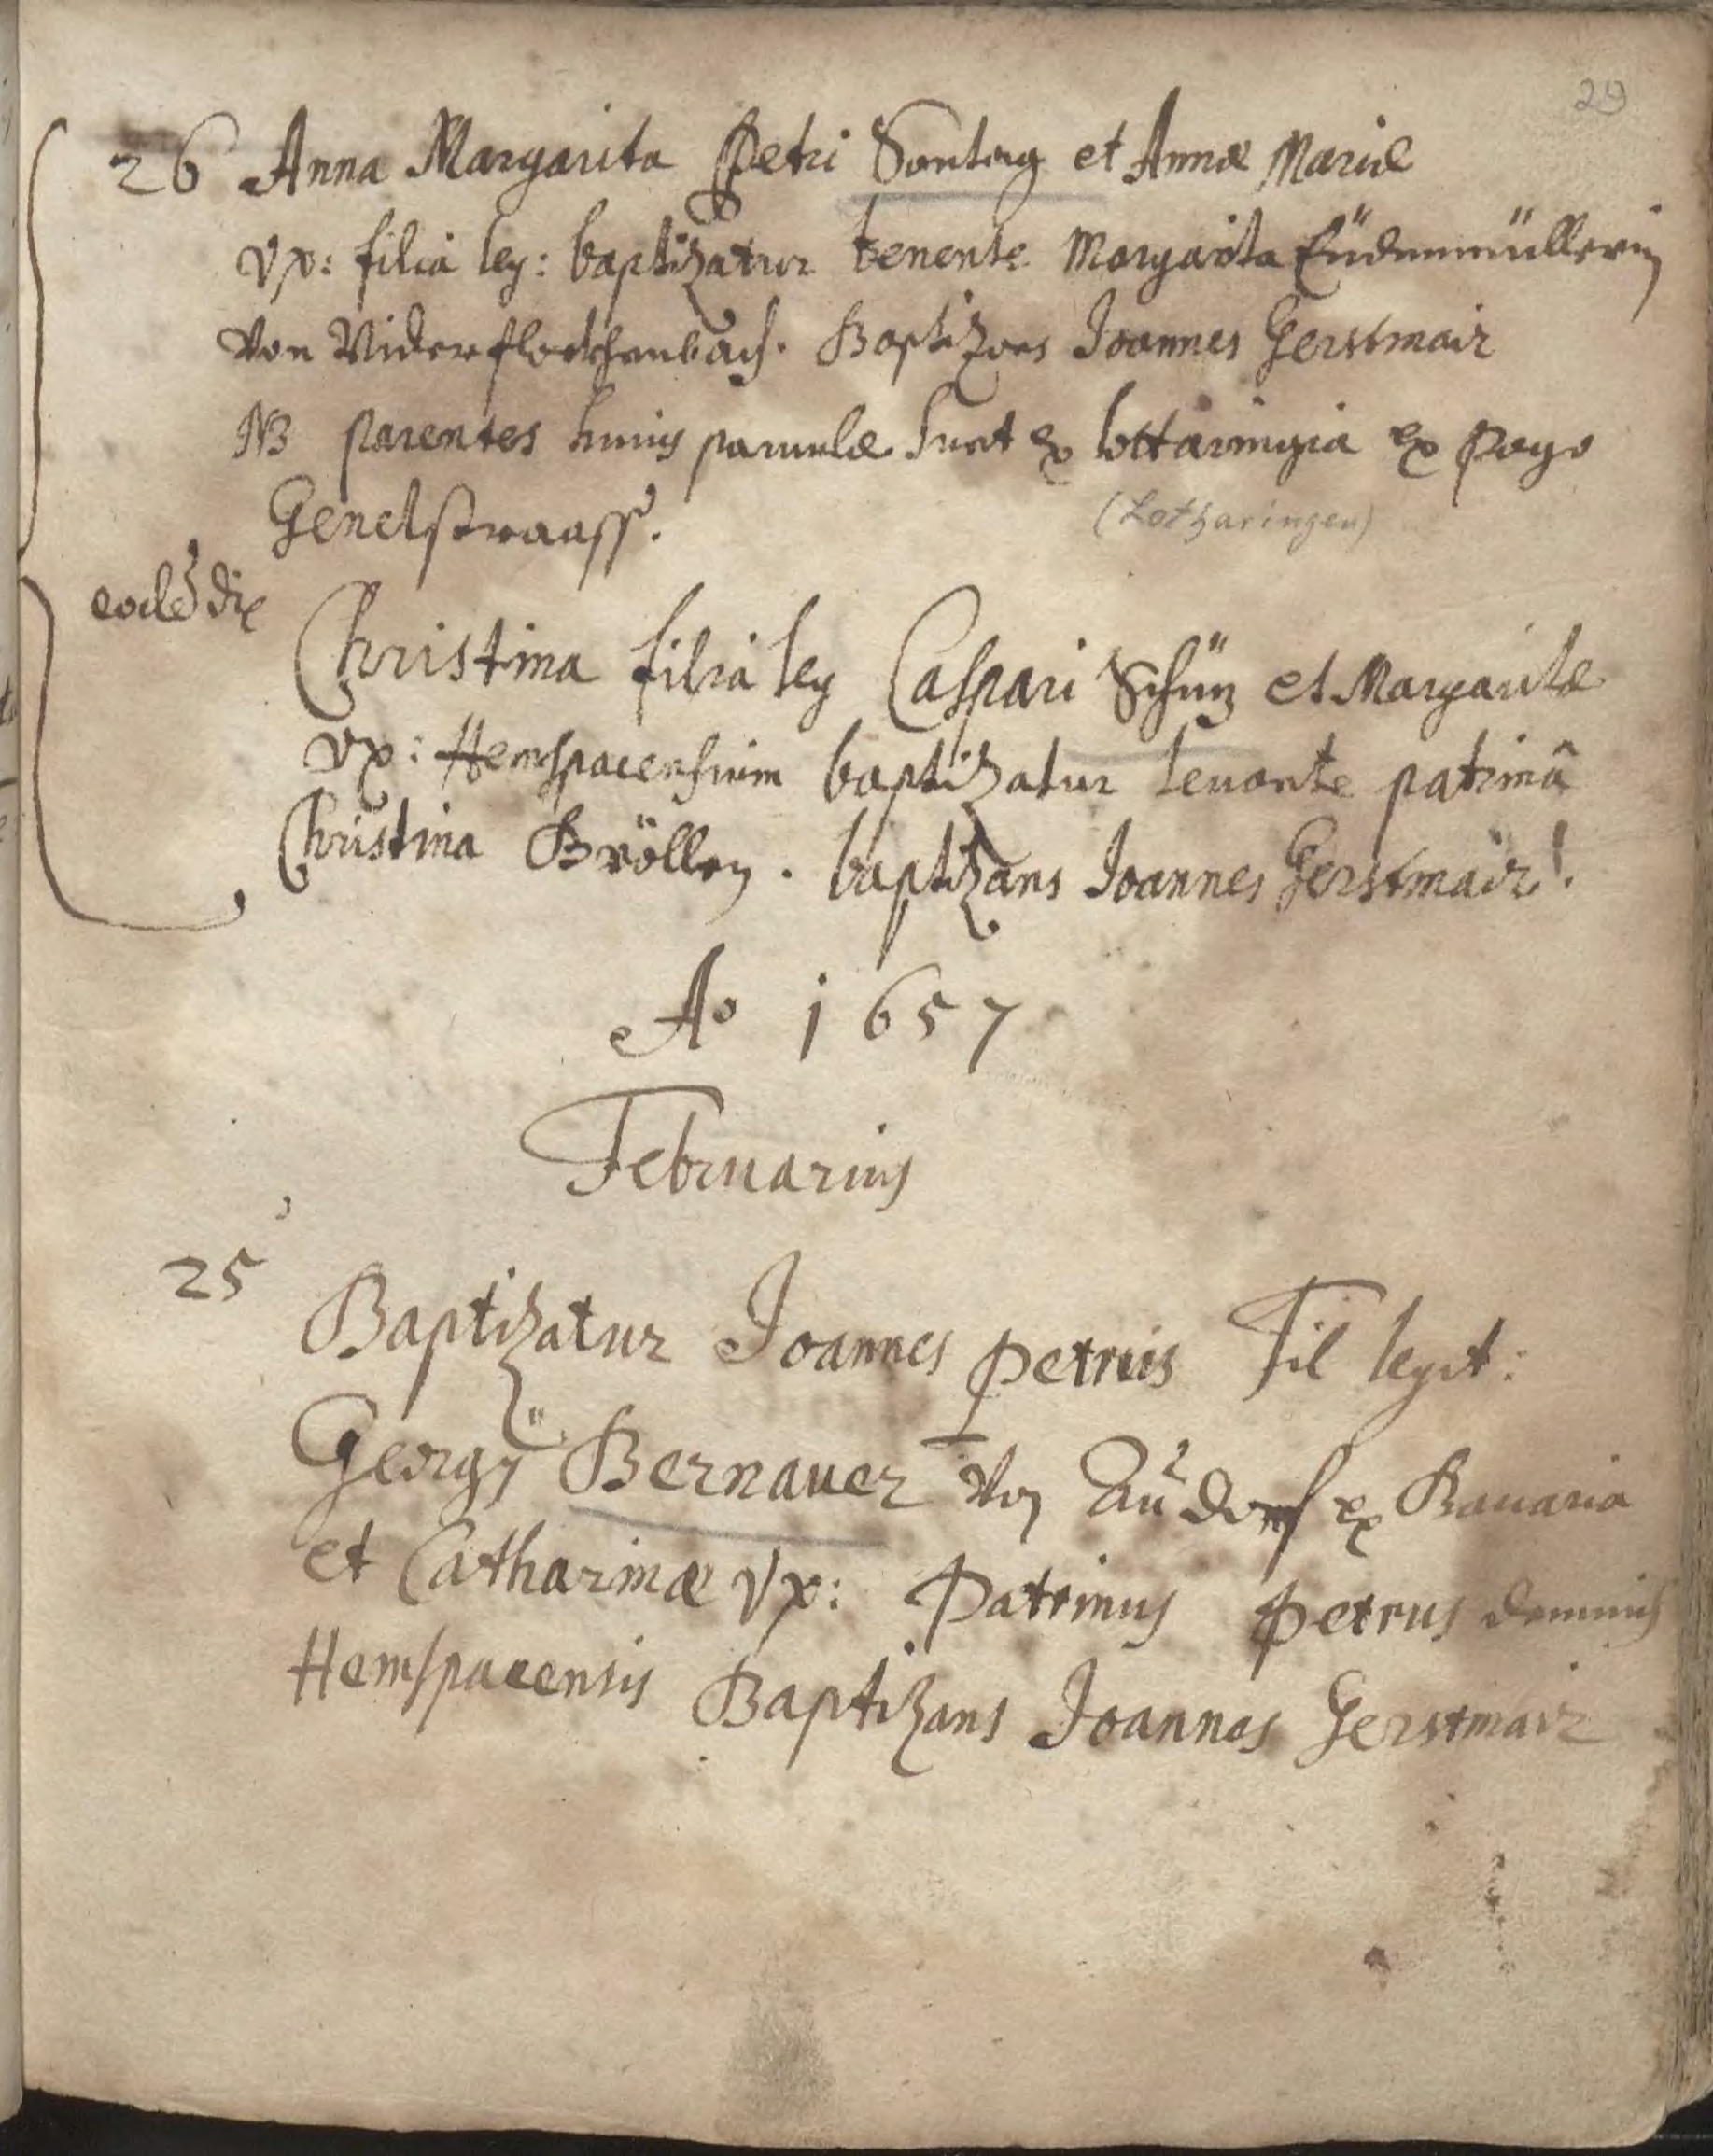 29
26 Anna Margarita Petri Sontag et Annæ Mariæ
Vx: filia leg: baptizatur tenente Margarita
von Niderflockhenbach. Baptizans Joannes Gerstmair
NB parentes huius parvulæ sunt ex lottaringia ex pago
(Lotharingen)
eodē die
Christina filia leg Caspari Schüz et Margaritæ
Vx: Hemspacensium baptizatur levante patrinâ
Christina Bröllin. baptizans Joannes Gerstmair.
Ao 1657
Februarius
25
Baptizatur Joannes Petrus Fil legit:
Georgÿ Bernauer von Audorf ex Bavaria
et Catharinæ Vx: Patrinus Petrus
Hemspacensis Baptizans Joannes Gerstmair